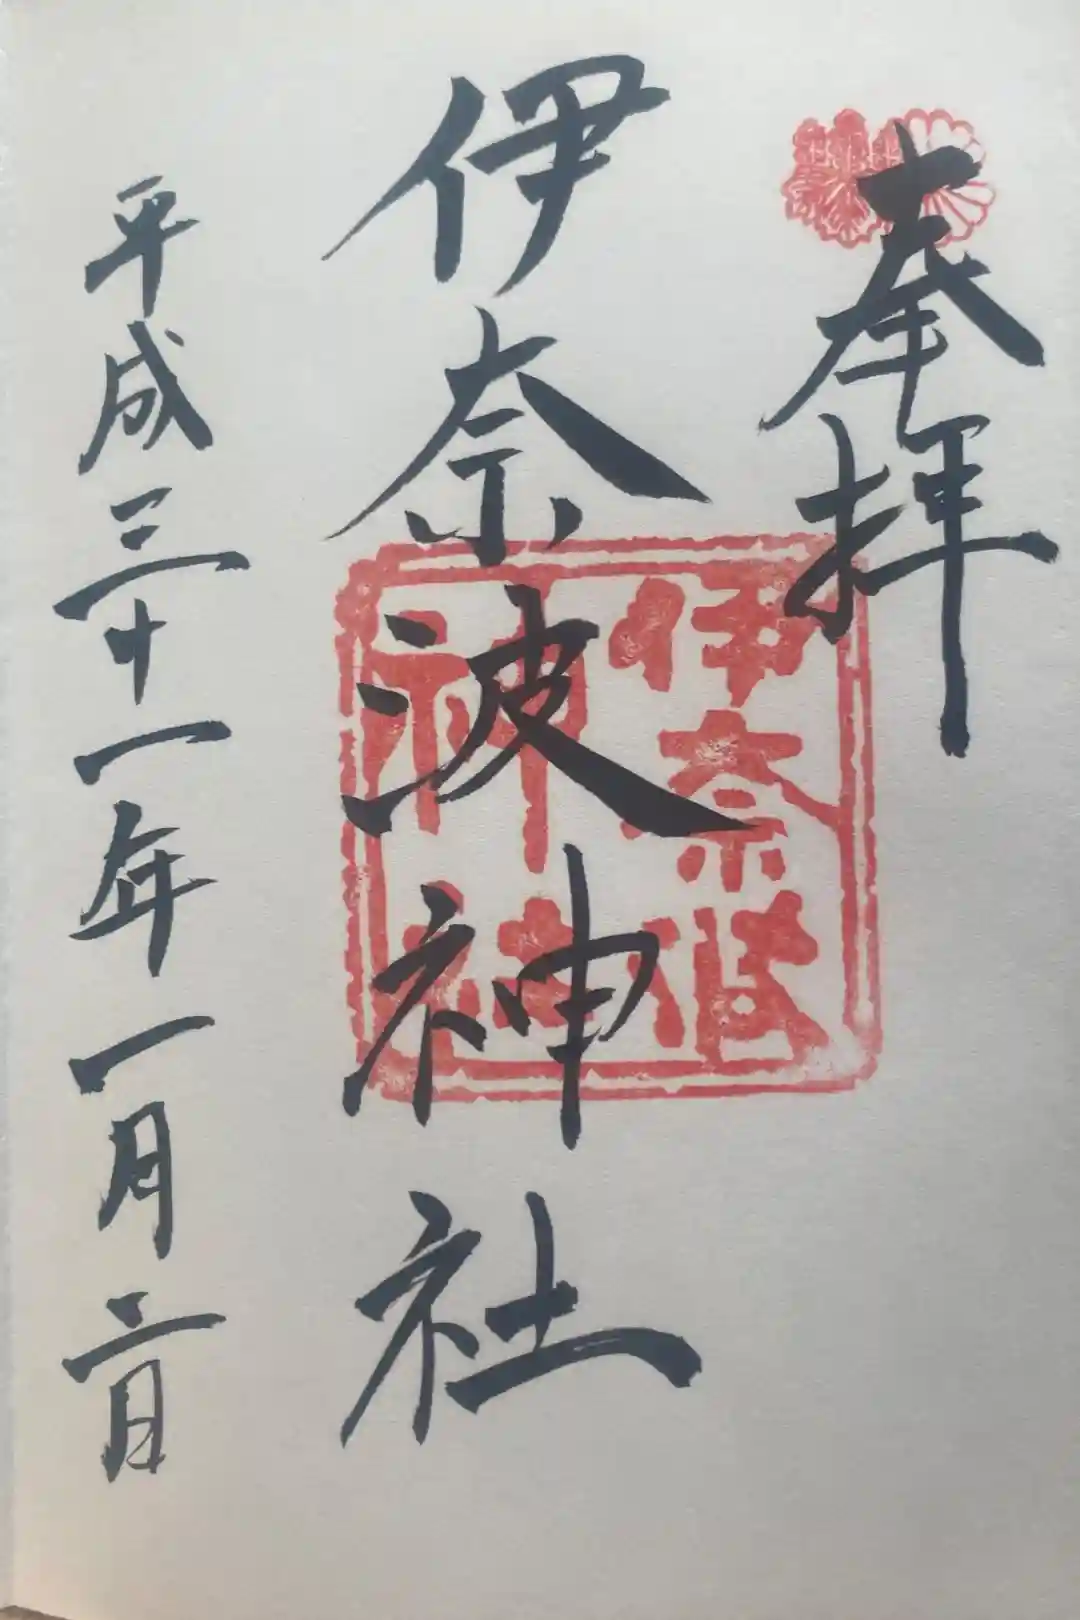 奉拝
伊奈波神社
伊奈波
神社
平成三十一年一月二日